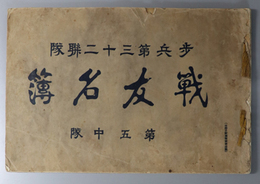 隊聯二十三第兵步
簿名友戰
隊中五第